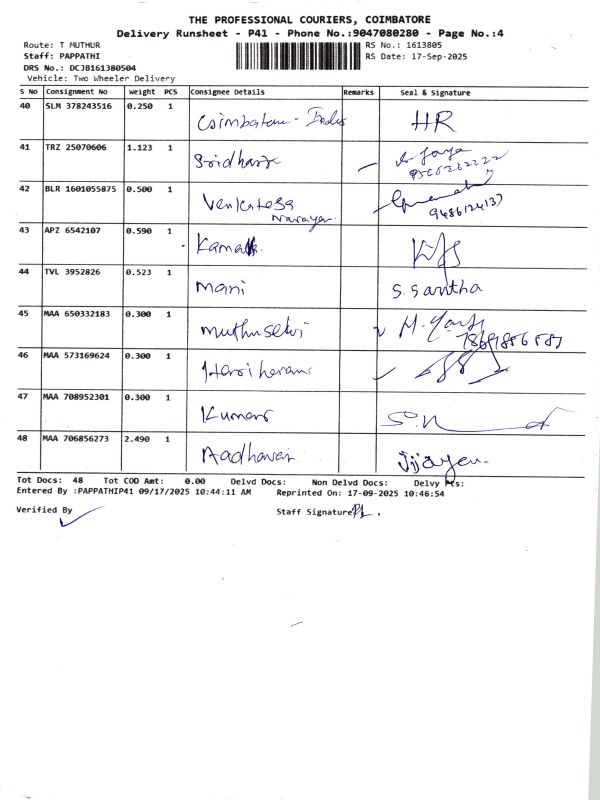 THE PROFESSIONAL COURIERS, COIMBATORE
Delivery Runsheet - P41 - Phone No.:9047080280 - Page No.:4
Route: T MUTHUR RS No.: 1613805
Staff: PAPPATHI RS Date: 17-Sep-2025
DRS No.: DCJB161380504
Vehicle: Two Wheeler Delivery
S No Consignment No Weight PCS Consignee Details Remarks Seal & Signature
40 SLM 378243516 0.250 1 Coimbatore - India HR
41 TRZ 25070606 1.123 1 Sridhar
42 BLR 1601055875 0.500 1 Venkatesa
Narayan 9486124137
43 APZ 6542107 0.590 1 Kamak
44 TVL 3952826 0.523 1 Mani S. Santha
45 MAA 650332183 0.300 1 Muthuselvi
46 MAA 573169624 0.300 1 Hariharan
47 MAA 708952301 0.300 1 Kumar
48 MAA 706856273 2.490 1 Aadhavan Vijayen.
Tot Docs: 48 Tot COD Amt: 0.00 Delvd Docs: Non Delvd Docs: Delvy Pts:
Entered By :PAPPATHIP41 09/17/2025 10:44:11 AM Reprinted On: 17-09-2025 10:46:54
Verified By Staff Signature